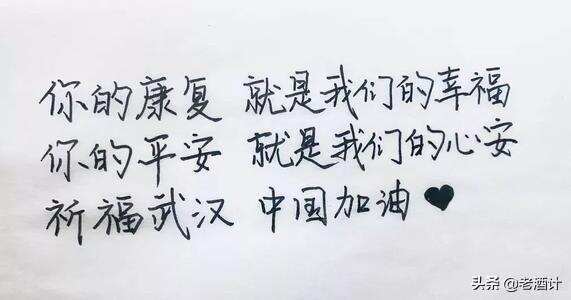 你的康复 就是我们的幸福
你的平安 就是我们的心安
祈福武汉 中国加油♥
头条 @老酒计